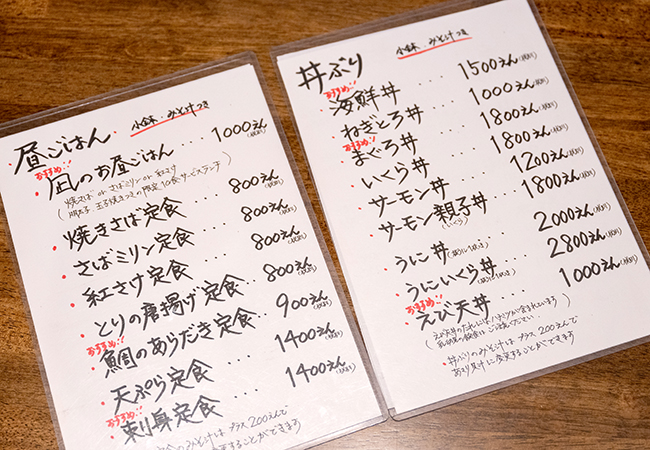 昼ごはん 小鉢・みそ汁つき
おすすめ!!
・凪のお昼ごはん ・・・ 1000えん
(焼さば or さばミリン or 紅さけ
明太子 玉子焼きつきの限定10食サービスランチ)
・焼きさば定食 ・・・ 800えん
・さばミリン定食 ・・・ 800えん
・紅さけ定食 ・・・ 800えん
・とりの唐揚げ定食 ・・ 800えん
おすすめ!!
・鯛のあらだき定食 ・・ 900えん
・天ぷら定食 ・・・ 1400えん
おすすめ!!
・刺身定食 ・・・ 1400えん
定食のみそ汁は プラス200えんで
することができます
丼ぶり 小鉢・みそ汁つき
おすすめ!!
・海鮮丼 ・・・ 1500えん
・ねぎとろ丼 ・・・ 1000えん
おすすめ!!
・まぐろ丼 ・・・ 1800えん
・いくら丼 ・・・ 1800えん
・サーモン丼 ・・・ 1200えん
・サーモン親子丼 ・・ 1800えん
(いくら)
・うに丼 ・・・ 2000えん
・うにいくら丼 ・・ 2800えん
おすすめ!!
・えび天丼 ・・・ 1000えん
・丼ぶりのみそ汁は プラス 200えんで
あさり貝汁に変更することができます